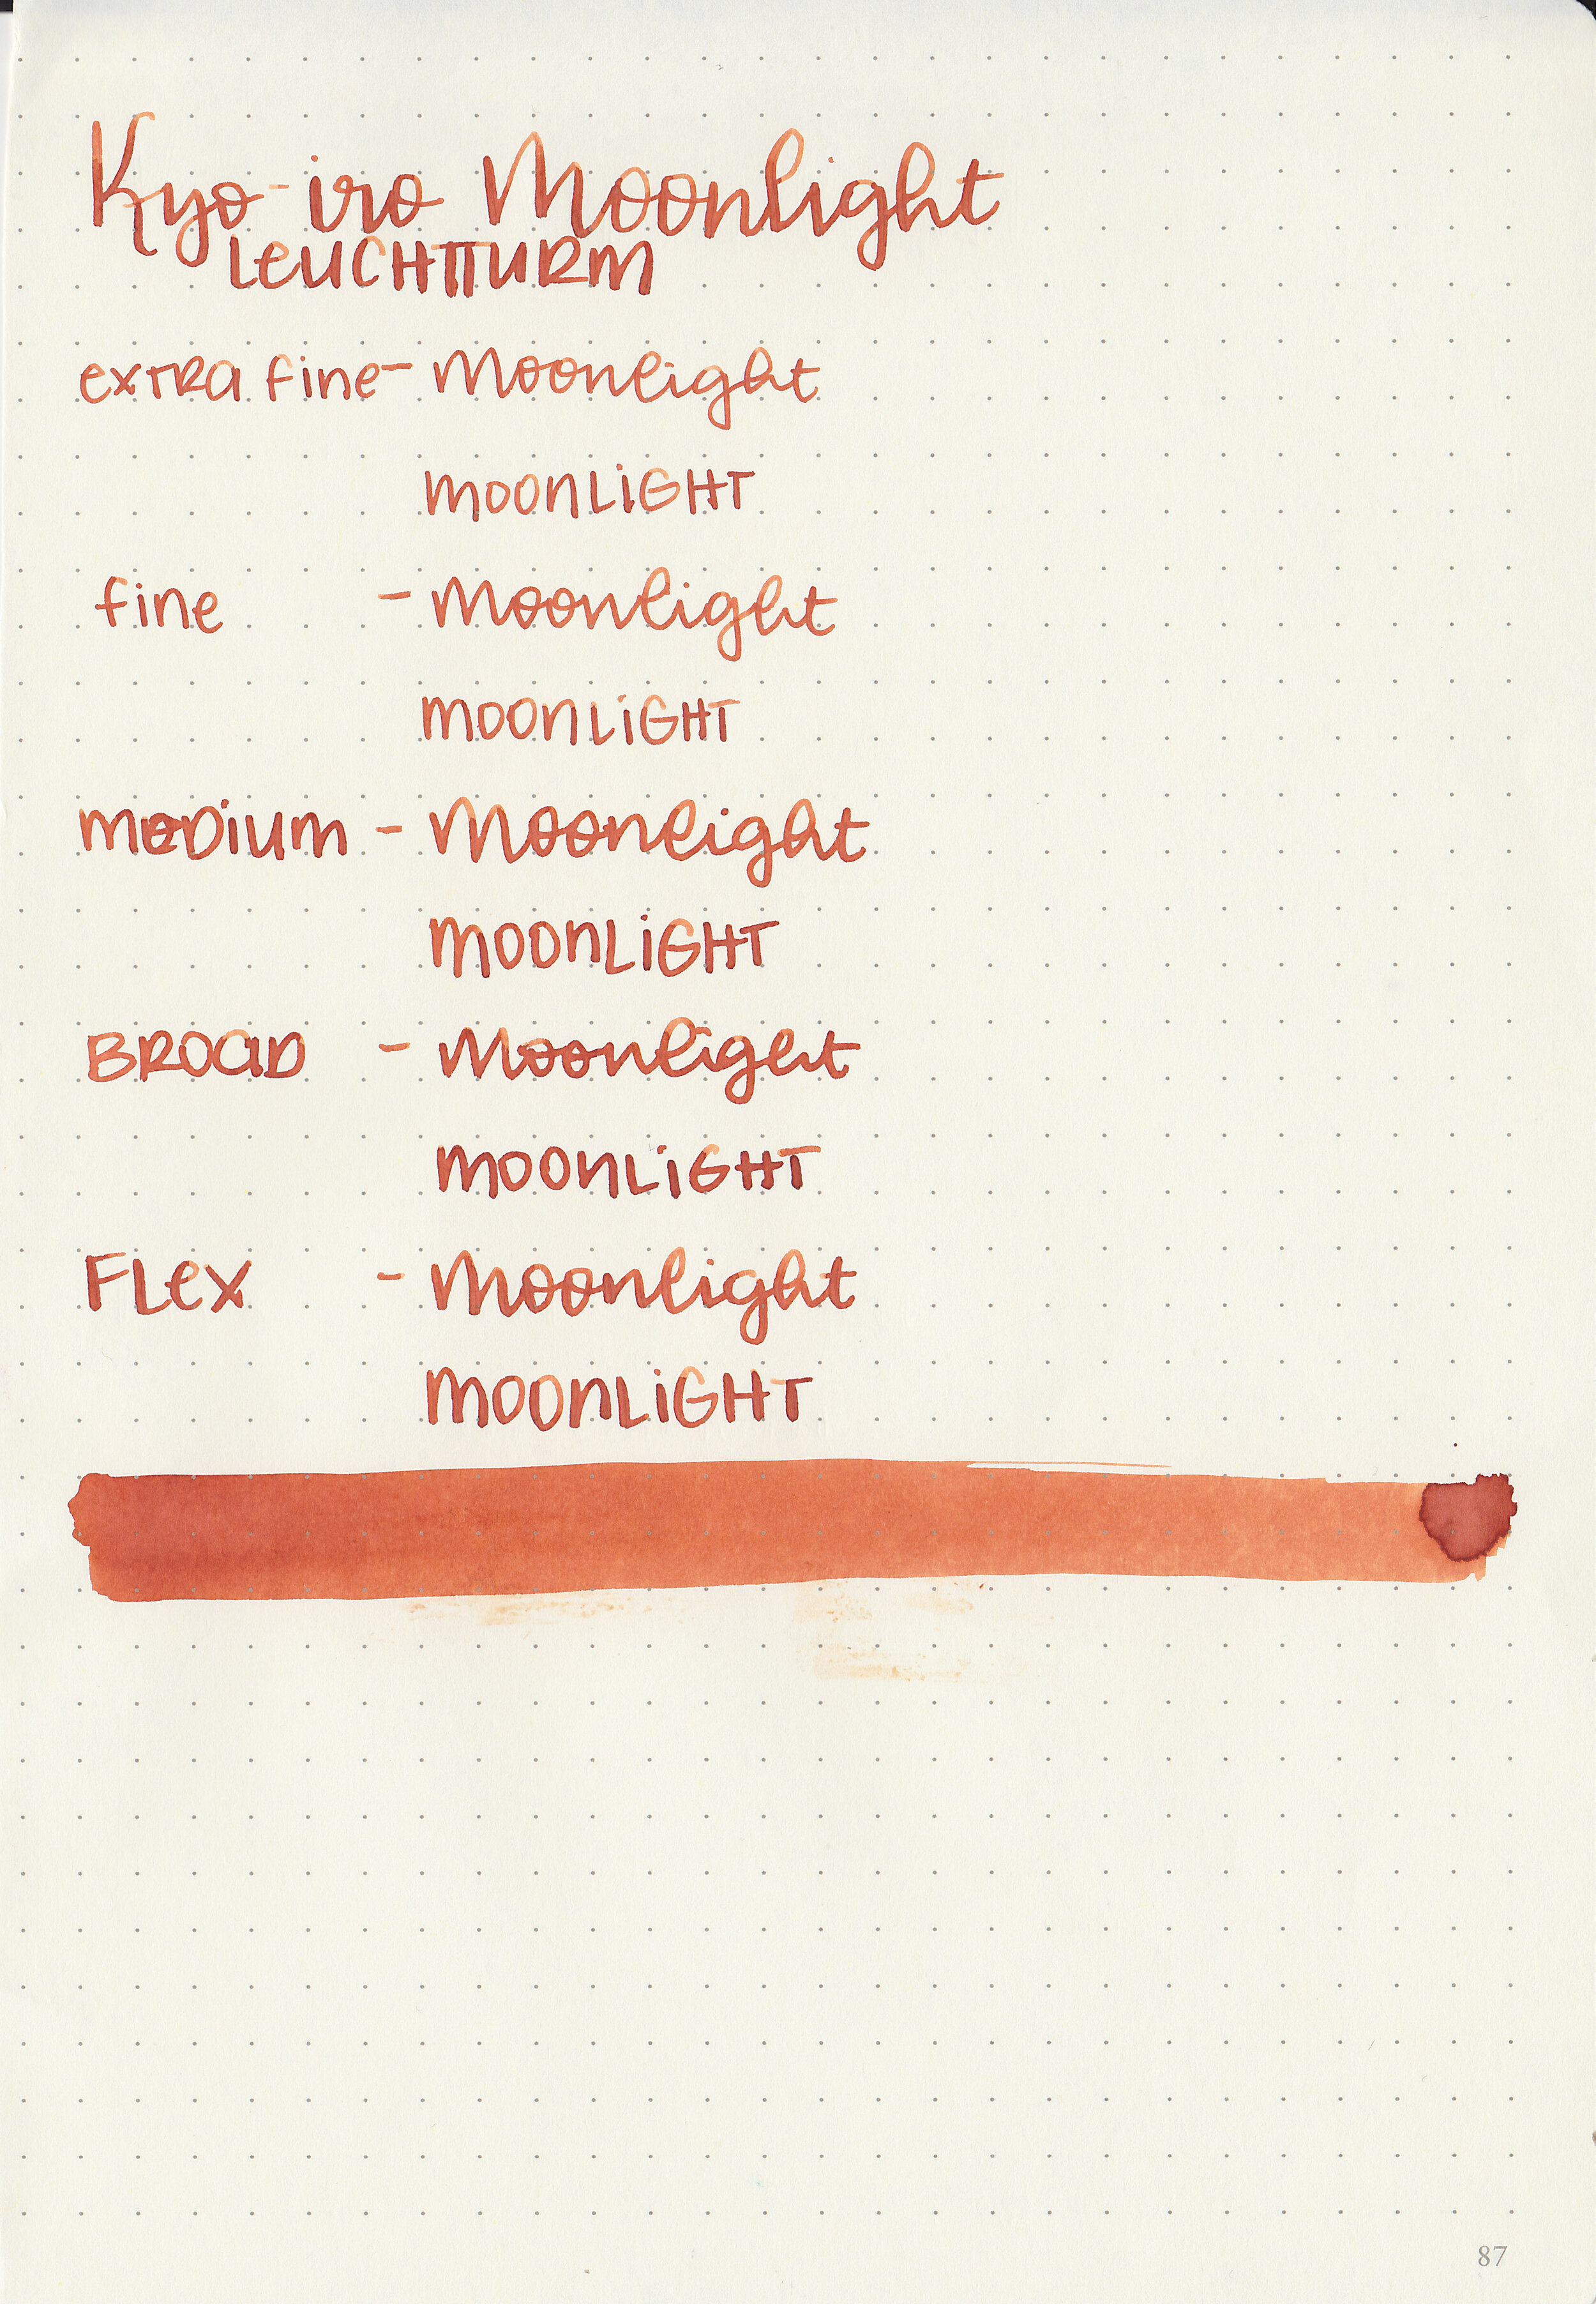 Kyo-iro Moonlight
LEUCHTTURM
extra fine - Moonlight
MOONLIGHT
fine - Moonlight
MOONLIGHT
medium - Moonlight
MOONLIGHT
BROAD - Moonlight
MOONLIGHT
FLex - Moonlight
MOONLIGHT
87